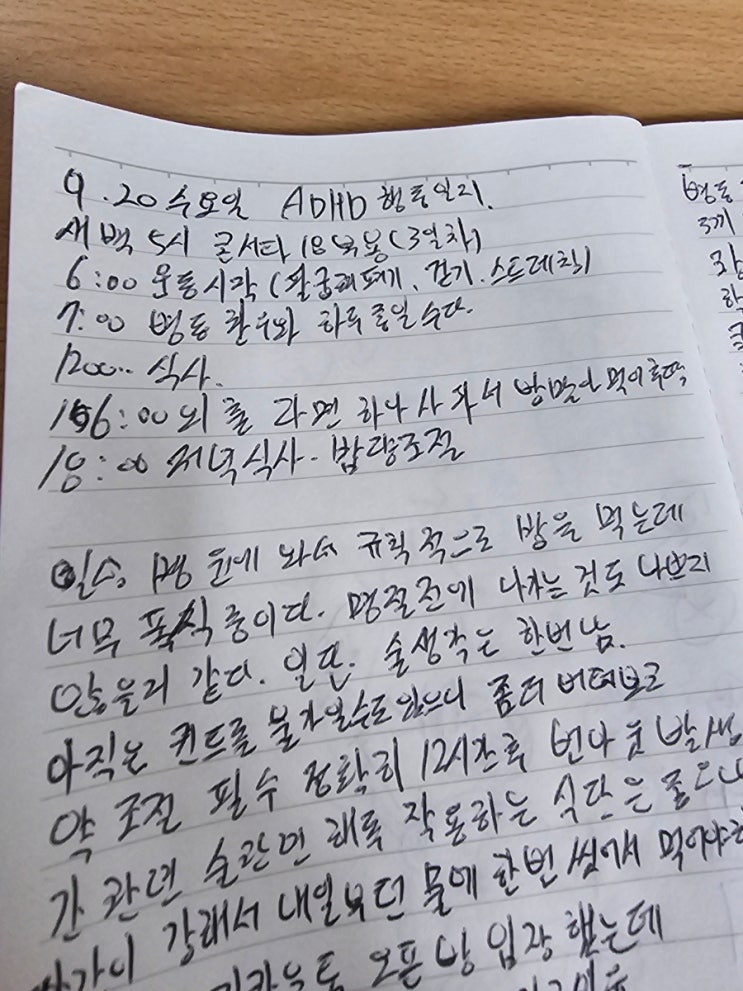 9.20 수요일 ADHD 행동일지.
새벽 5시 콘서타 18 복용 (3일차)
6:00 운동시작 (팔굽혀펴기, 걷기, 스트레칭)
7:00 병동 환우와 하루종일 수다.
1200.. 식사.
16:00 외출 라면 하나 사와서 밥말아 먹어
18:00 저녁식사. 밥량조절
병원에 와서 규칙적으로 밥을 먹는데
너무 폭식 중이다. 명절전에 나가는 것도 나쁘지
않을거 같다. 일단. 술생각은 한번 남.
아직은 컨트롤 불가일수도 있으니 좀더 버텨보고
약 조절 필수 정확히 12시간후 번아웃 발생
간 관련 술관련 해독 작용하는 식단은 좋으나
강해서 내일부턴 물에 한번 씻어서 먹어야
오픈방 입장 했는데
병동
3끼